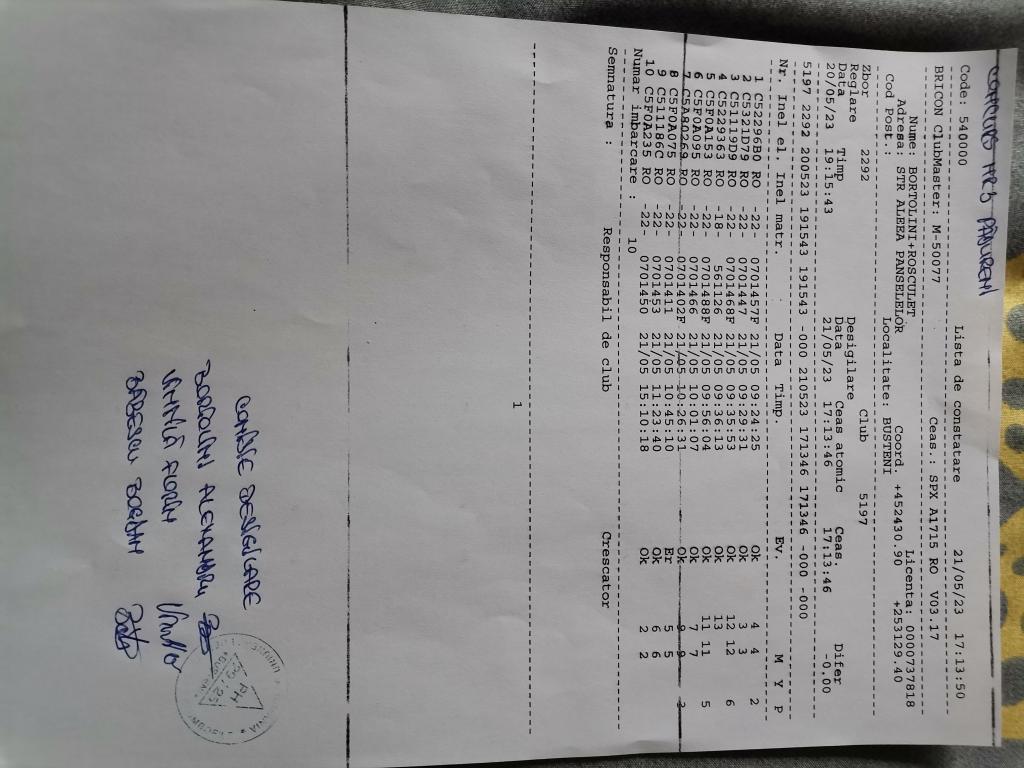 CONCURS NR3 PĂDURENI
Lista de constatare 21/05/23 17:13:50
Code: 540000
BRICON ClubMaster: M-50077 Ceas.: SPX A1715 RO V03.17
Nume: BORTOLINI+ROSCULET Licenta: 0000737818
Adresa: STR ALEEA PANSELELOR Coord +452430.90 +253129.40
Cod Post.: Localitate: BUSTENI
Zbor 2292 Club 5197
Reglare Desigilare
Data Timp Data Ceas atomic Ceas. Difer
20/05/23 19:15:43 21/05/23 17:13:46 17:13:46 -0.00
5197 2292 200523 191543 191543 -000 210523 171346 171346 -000 -000
Nr. Inel el. Inel matr. Data Timp. Ev. M Y P
1 C52296B0 RO -22- 0701457F 21/05 09:24:25 Ok 4 4 2
2 C5321D79 RO -22- 0701447 21/05 09:29:31 Ok 3 3
3 C51119D9 RO -22- 0701448F 21/05 09:35:53 Ok 12 12 6
4 C5229363 RO -18- 561126 21/05 09:36:13 Ok 13
5 C5F0A153 RO -22- 0701488F 21/05 09:56:04 Ok 11 11 5
6 C5F0A095 RO -22- 0701466 21/05 10:01:07 Ok 7 7
7 C5A8D269 RO -22- 0701402F 21/05 10:26:31 Ok 9 9 3
8 C5F0A075 RO -22- 0701411 21/05 10:45:10 Er 5 5
9 C511186C RO -22- 0701453 21/05 11:23:40 Ok 6 6
10 C5F0A435 RO -22- 0701450 21/05 15:10:18 Ok 2 2
Numar imbarcare : 10
Semnatura : Responsabil de club Crescator
1
COMISIE DESIGILARE
BORTOLINI ALEXANDRU
VAMVLĂ FLORIN
BĂBESCU BOGDAN
PH